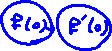 f(0), f'(0)